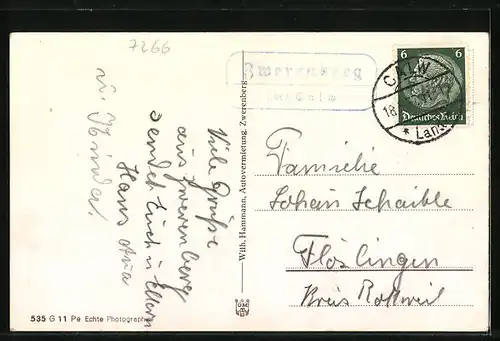 7266
Zwerenberg
über Calw
6
CALW
18
* Land
Deutsches Reich
Viele Grüße
aus Zwerenberg
sendet Euch u. Eltern
Hans
u. Kinder.
Wilh. Hammann, Autovermietung, Zwerenberg
Familie
Johan Schaible
Flözlingen
Kreis Rottweil
535 G 11 Pe Echte Photographie